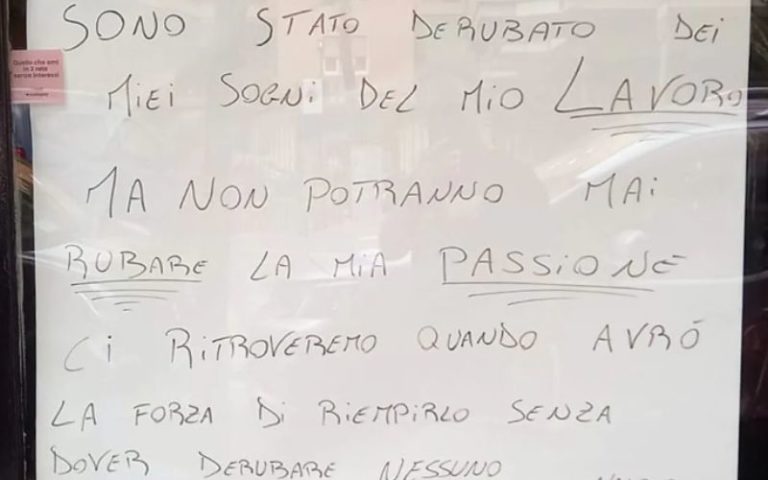 SONO STATO DERUBATO DEI
MIEI SOGNI DEL MIO LAVORO
MA NON POTRANNO MAI
RUBARE LA MIA PASSIONE
CI RITROVEREMO QUANDO AVRÓ
LA FORZA DI RIEMPIRLO SENZA
DOVER DERUBARE NESSUNO
Quello che ami
in 3 rate
senza interessi